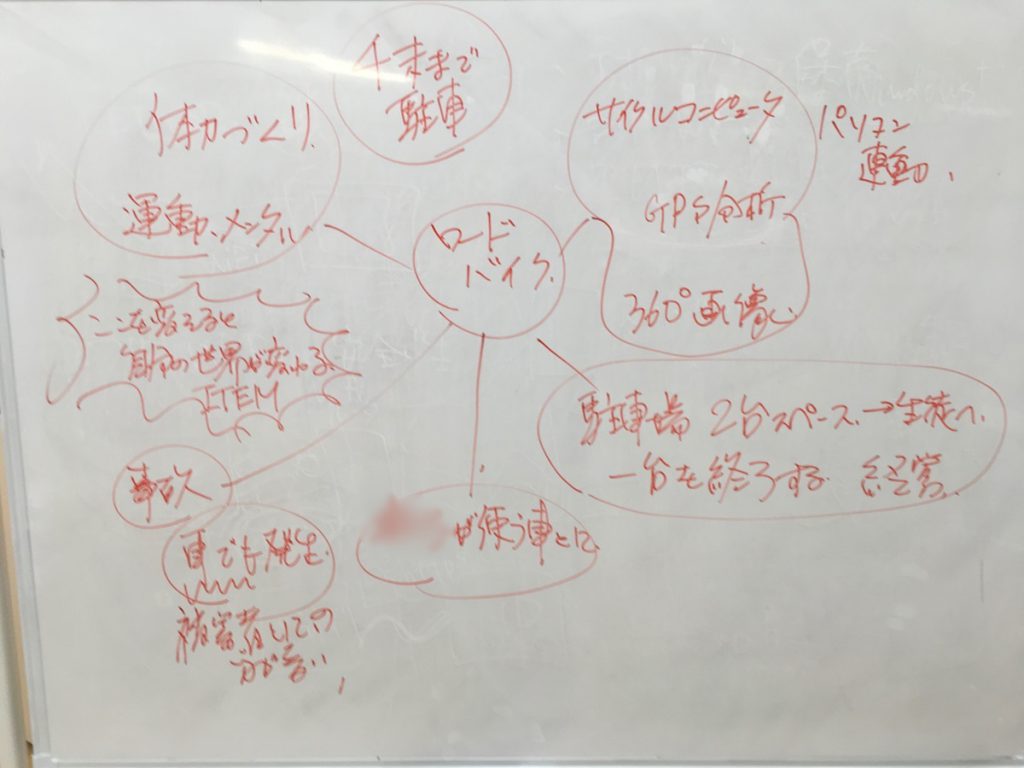 体力づくり
運動、メンタル
駐車
サイクルコンピュータ
GPS分析
360°画像
パソコン
連動、
ロード
バイク
ここを変えると
自分の世界が変わる
ITEM
駐車場 2台スペース→生徒へ
一台を終了する 経営
事故
車でも発生
が使う車として
被害者